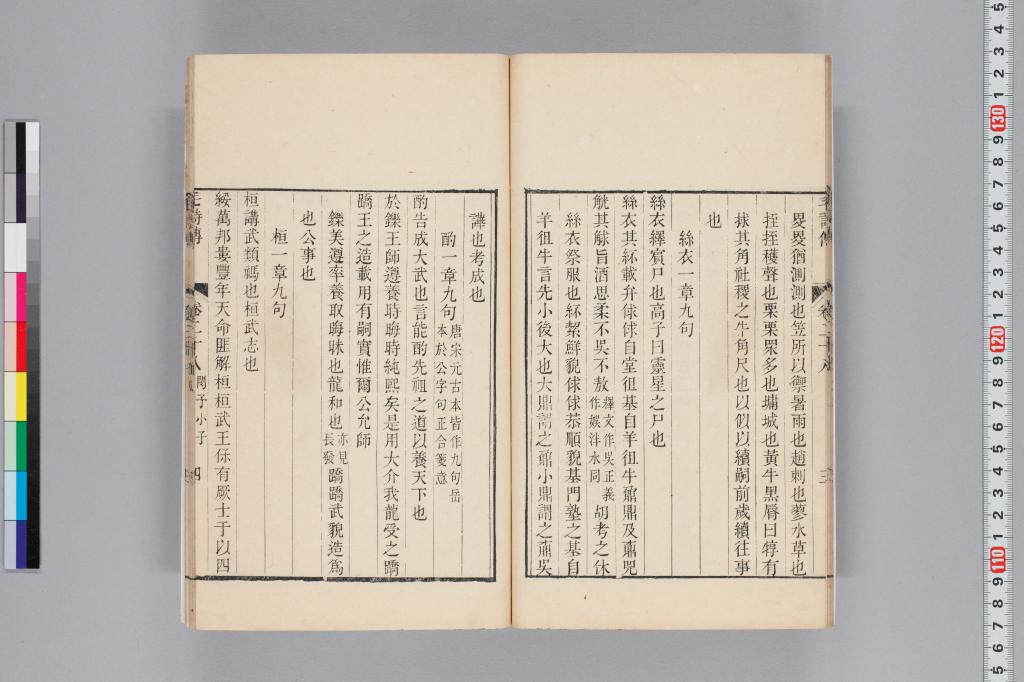 畟畟猶測測也笠所以禦暑雨也趙刺也蓼水草也
挃挃穫聲也栗栗眾多也墉城也黃牛黑脣曰犉有
捄其角社稷之牛角尺也以似以續嗣前歲續往事
也
絲衣一章九句
絲衣繹賓尸也高子曰靈星之尸也
絲衣其紑載弁俅俅自堂徂基自羊徂牛鼐鼎及鼒兕
觥其觩旨酒思柔不吳不敖釋文作吳正義作娛泮水同胡考之休
絲衣祭服也紑絜鮮貌俅俅恭順貌基門塾之基自
羊徂牛言先小後大也大鼎謂之鼐小鼎謂之鼒吳
譁也考成也
酌一章九句唐宋元古本皆作九句岳本於公字句正合箋意
酌告成大武也言能酌先祖之道以養天下也
於鑠王師遵養時晦時純熙矣是用大介我龍受之蹻
蹻王之造載用有嗣實惟爾公允師
鑠美遵率養取晦昧也龍和也亦見長發蹻蹻武貌造爲
也公事也
桓一章九句
桓講武類禡也桓武志也
綏萬邦婁豐年天命匪解桓桓武王保有厥士于以四
毛詩傳
卷二十八
閔予小子
四